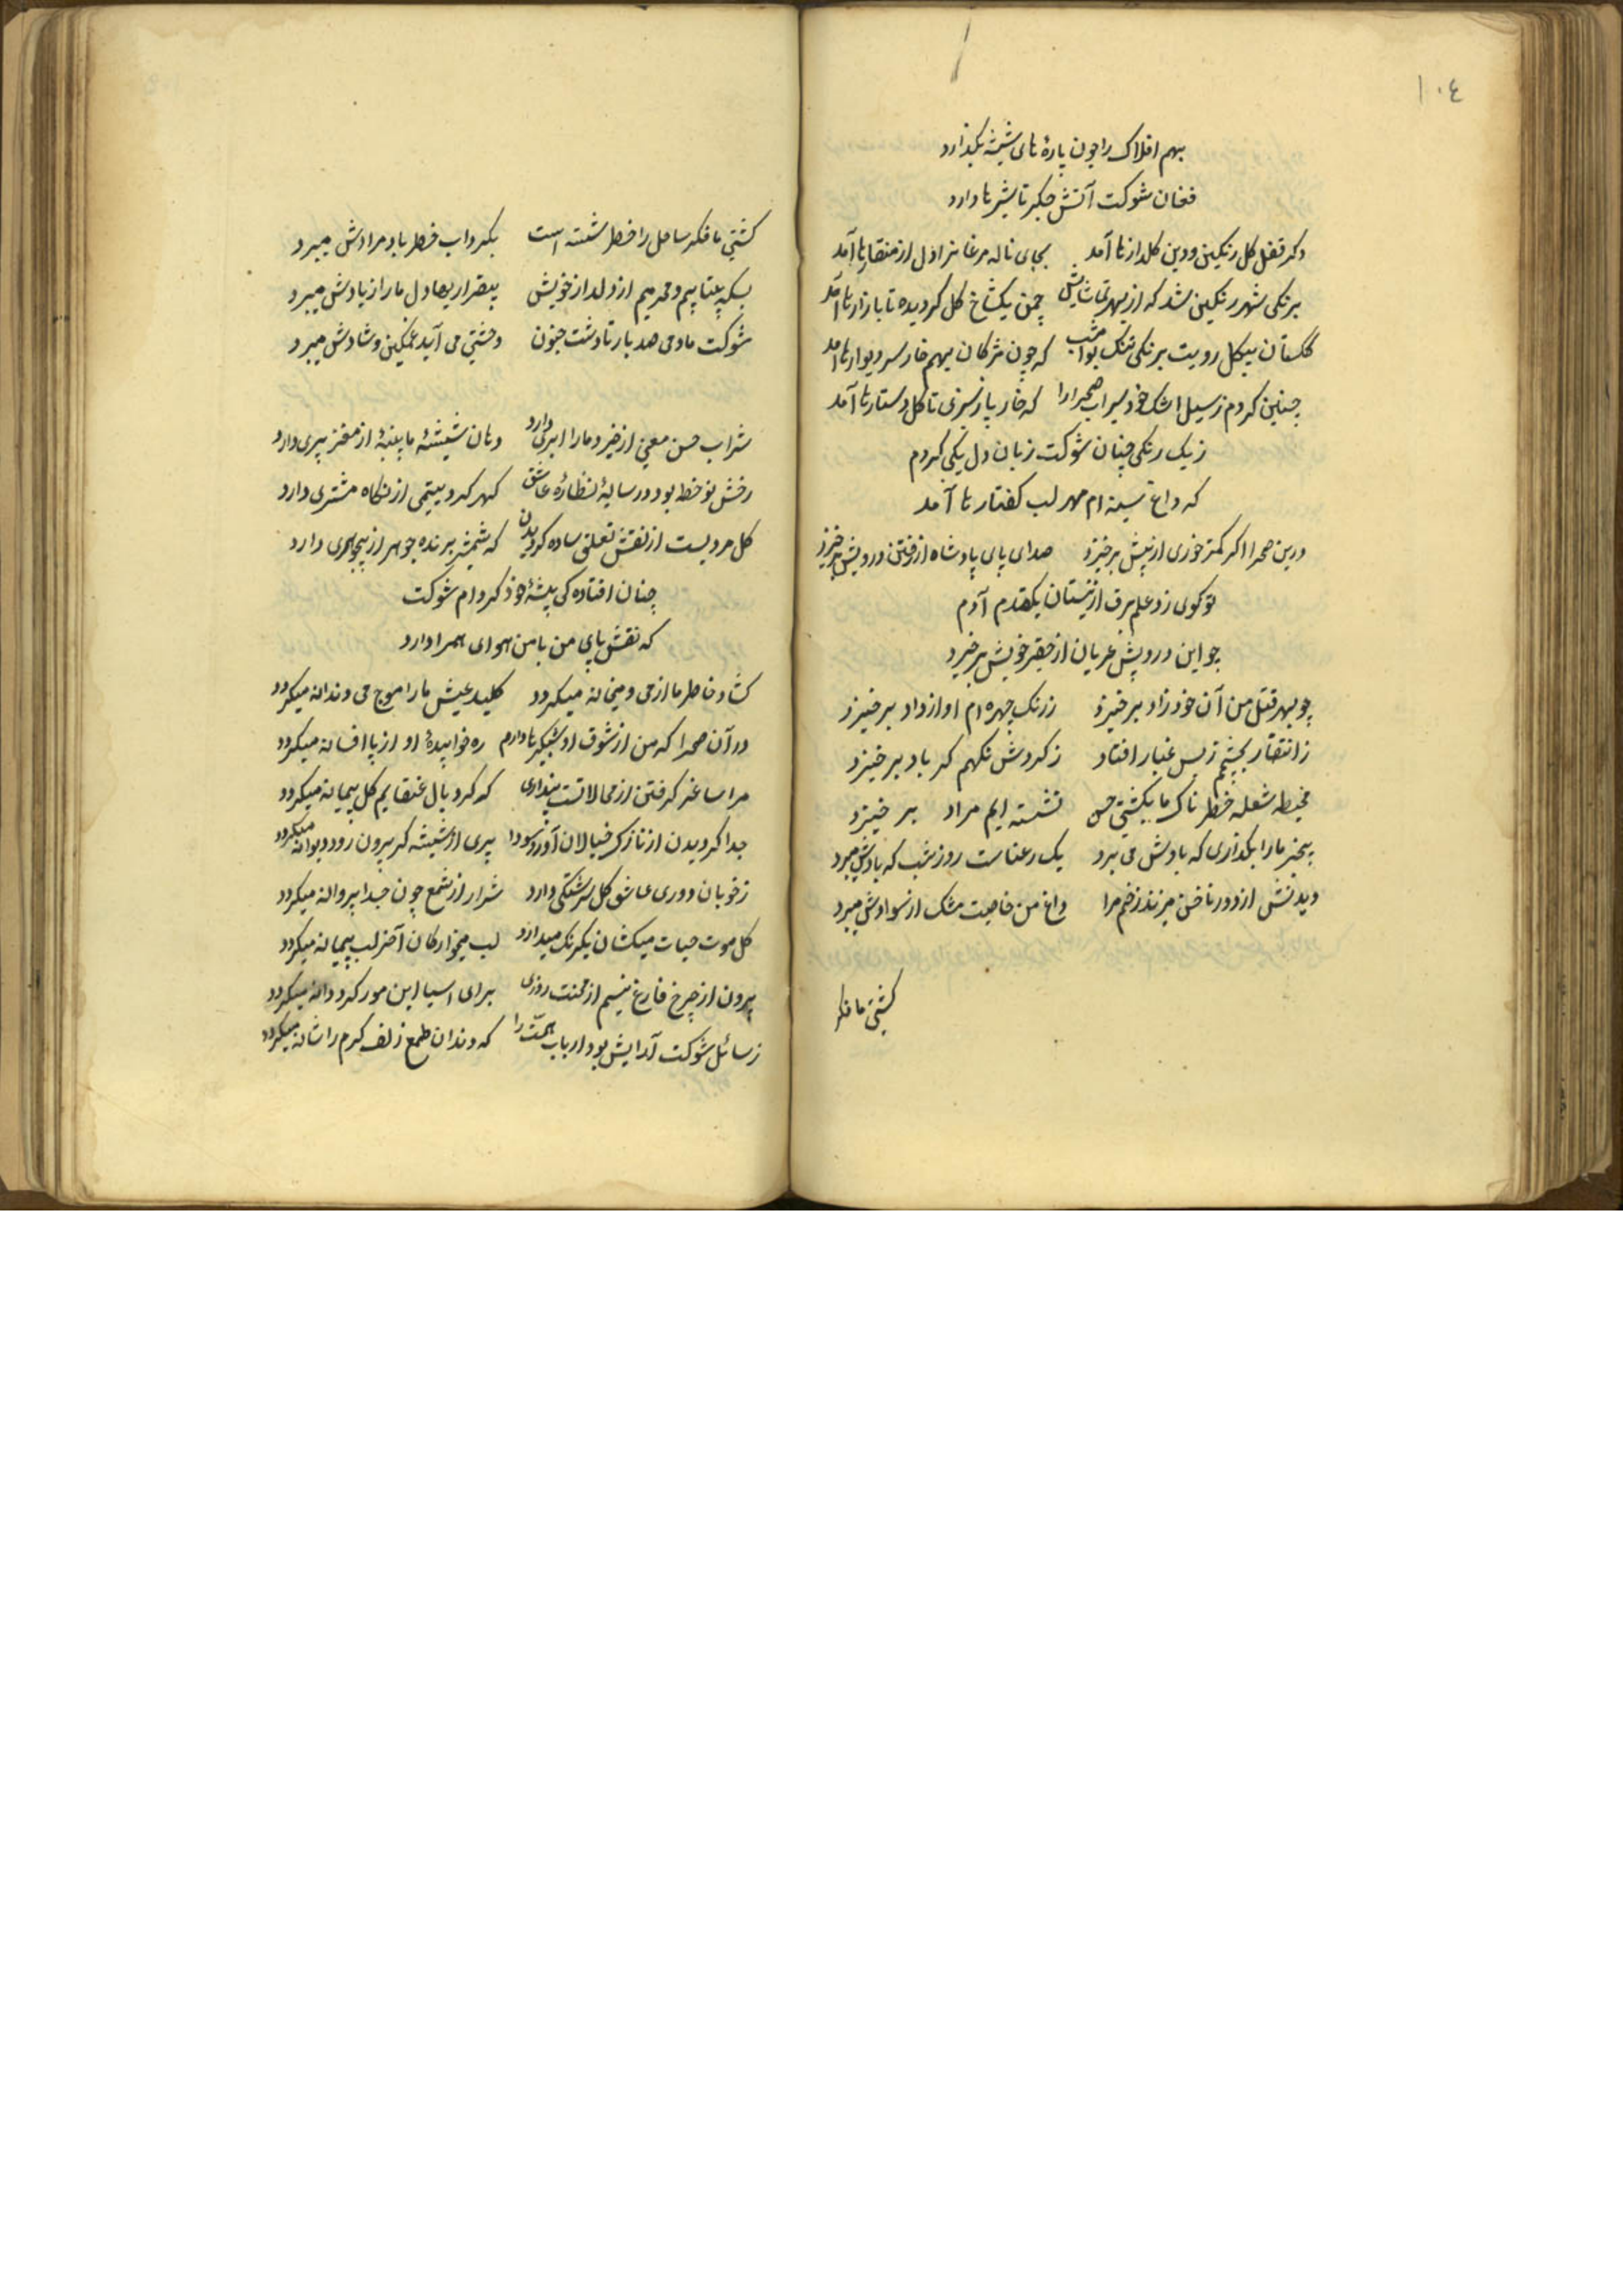 ١٠٤
بهم افلاک را چون پارهٔ های شیشه بگذارد
فغان شوکت آتش جگر تا شیرها دارد
دکر قفل کل رنکینی ودین کلدازها آمد بجای ناله مرغانرا دل از منقارها آمد
برنکی شهر رنکین شد که از بهر تماشایش چمن یکشاخ کل کردیده تا بازارها آمد
کلستان بیکل رویت برنکی تنک بود امشب که چون مژکان بهم خار سر دیوارها آمد
چنین کردم ز سیل اشک خود سیراب صحرارا که خار پا ز سبزی تا کل دستارها آمد
ز یک رنکی چنان شوکت زبان دل یکی کردم
که داغ سینه ام مهر لب کفتارها آمد
درین صحرا اکر کمتر خوری از پیش برخیزد صدای پای پادشاه از رفتن درویش برخیزد
تو کوی زد علم برق از نیستان یکقدم آدم
چو این درویش عریان از حقیر خویش برخیزد
چو بهر قتل من آن خود زاد برخیزد ز رنک چهره ام او از داد برخیزد
ز انتقار بچشمم ز بس غبار افتاد ز کردش نکهم کر باد برخیزد
محیط شعله خطرناک ما بکشتی خس نشسته ایم مراد بر خیزد
بیخبر مارا بکذاری که یادش می برد یک رعناست روز شب که یادش میبرد
دیدنش از دور ناخن میزند زخم مرا داغ من خاصیت مشک از سوادش میبرد
کشتی ما فکر
کشتی ما فکر ساحل را خطر شسته است بکرداب خطر باد مرادش میبرد
بسکه بیتابیم و محرمیم از دلدار خویش بیقراریها دل ما را از یادش میبرد
شوکت ما دمی صد بار تا دشت جنون وحشتی می آید غمکین و شادش میبرد
شراب حسن معنی از خبرد مارا ابری دارد دهان شیشهٔ ما پنبهٔ از مغز پری دارد
رخش نو خط بود در سایهٔ نظارهٔ عاشق کهر کرد یتیمی از نکاه مشتری دارد
کل مردیست از نقش تعلق ساده کردیدن که شمشیر برنده جوهر از بیجوهری دارد
چنان افتاده کی پیشهٔ خود کرد ام شوکت
که نقش پای من با من هوای همرا دارد
کشاد خاطر ما از می و میخانه میکردد کلید عیش ما را موج می دندانه میکردد
در آن صحرا که من از شوق او شبکیرها دارم ره خوابیدهٔ او از پا افسانه میکردد
مرا ساغر کرفتن از محالاتست پنداری که کرد بال عنقایم کل پیمانه میکردد
جدا کردیدن از نازک خیالان آورد سودا پری از شیشه کر بیرون رود دیوانه میکردد
ز خوبان دوری عاشق کل سرکشتکی دارد شرار از شمع چون جدا پروانه میکردد
کل موت حیات میکشان یکرنک میدارد لب میخوارکان آخر لب پیمانه میکردد
برون از چرخ فارغ نیستم از محنت روزی برای اسیا این مور کرد دانه میکردد
ز سائل شوکت آرایش بود ارباب همّت را که دندان طمع زلف کرم را شانه میکردد